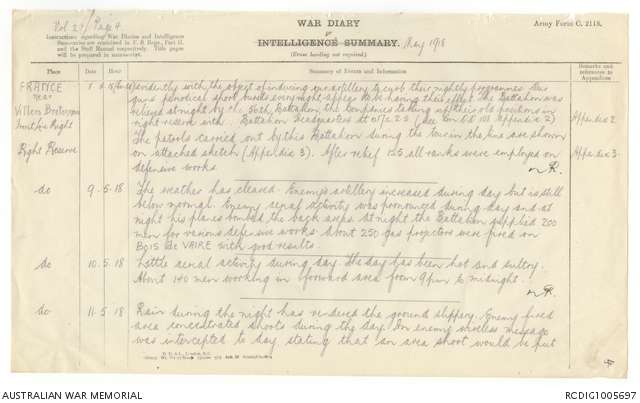 Vol 27/ Page 4
WAR DIARY
or
INTELLIGENCE SUMMARY.
May 1918
(Erase heading not required.)
Army Form C. 2118.
Instructions regarding War Diaries and Intelligence
Summaries are contained in F. S. Regs., Part II.
and the Staff Manual respectively. Title pages
will be prepared in manuscript.
Place
Date
Hour
Summary of Events and Information
Remarks and
references to
Appendices
FRANCE
near
Villers Bretonneux
Right Reserve
8 5 18
evidently with the object of inducing our artillery to curb their nightly programmes. Our
guns periodical shoot bursts every night appear to be having their effect. The Battalion was
relieved at night by the Battalion, the Companies taking up their old positions in
right reserve with Battalion Headquarters at O17c.2.5 (see Appendix 2)
Appendix 2
The patrols carried out by this Battalion during the tour in the line are shown
on attached sketch (Appendix 3). After relief 125 all ranks were employed on
Appendix 3
defensive works.
do
9. 5. 18
The weather has cleared. Enemy's artillery increased during day but is still
below normal. Enemy aerial activity was pronounced during day and at
night his planes bombed the back areas. At night the Battalion supplied 200
men for various defensive works. About 250 gas projectors were fired on
BOIS de VAIRE with good results.
do
10. 5. 18
Little aerial activity during day. The day has been hot and sultry.
About 140 men working in forward area from 9pm to midnight.
do
11. 5 18
Rain during the night has rendered the ground slippery. Enemy fired
area concentrated shoots during the day. An enemy wireless message
was intercepted to day stating that an area shoot would be put
AUSTRALIAN WAR MEMORIAL
RCDIG1005697